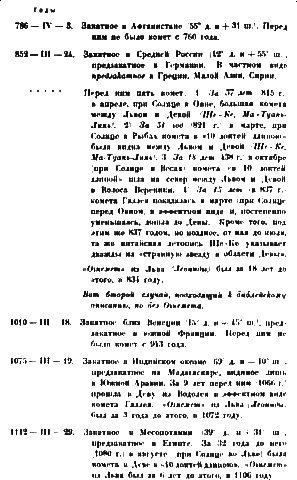 Годы
786 — IV — 3. Закатное в Афганистане 55° д. и + 31 ш. Перед
ним не было комет с 760 года.
852 — III — 24. Закатное в Средней России (42° д. и + 55° ш.,
предзакатное в Германии. В частном виде
предзакатное в Греции, Малой Азии, Сирии.
Перед ним пять комет. 1) За 37 лет 815 г.
в апреле, при Солнце в Овне, большая комета
между Львом и Девой (Ше-Ке, Ма-Туань-
Линь). 2) За 31 год 821 г. в марте, при
Солнце в Рыбах комета в «10 локтей длиною»
была видна между Львом и Девой (Ше-Ке,
Ма-Туань-Линь). 3) За 18 лет 838 г. в октябре
(при Солнце в Весах) комета «в 10 локтей
длиной» шла на север между Львом и Девой
в Волоса Вереники. 4) За 15 лет в 837 г.
комета Галлея показалась в марте при Солнце
перед Овном, в эффектном виде и, постепенно
уменьшаясь, дошла до Девы. Кроме того, под
этим же 837 годом, но позднее, от мая до июля,
та же китайская летопись Ше-Ке указывает
дважды на «странную звезду в области Девы».
«Отчетем» из Льва (Леониды) был за 18 лет до
этого, в 834 году.
Вот второй случай, подходящий к библейскому
описанию, но без Отчетем.
1010 — III — 18. Закатное близ Венеции (15° д. и + 45° ш.), пред-
закатное в южной Франции. Перед ним не
было комет с 943 года.
1075 — III — 19. Закатное в Индийском океане 69° д. и — 10° ш.,
предзакатное на Мадагаскаре, видимое лишь
в Южной Аравии. За 9 лет перед ним (1066 г.)
прошла в Деву из Водолея в эффектном виде
комета Галлея. «Отчетем» из Льва (Леониды)
был за 3 года до этого, в 1072 году.
1112 — III — 29. Закатное в Месопотамии (39° д. и + 31° ш.,
предзакатное в Египте. За 32 года до него
(1080 г.) в августе (при Солнце во Льве) была
комета в Деве в «10 локтей длиною». «Отчетем»
из Льва был за 6 лет до этого, в 1106 году